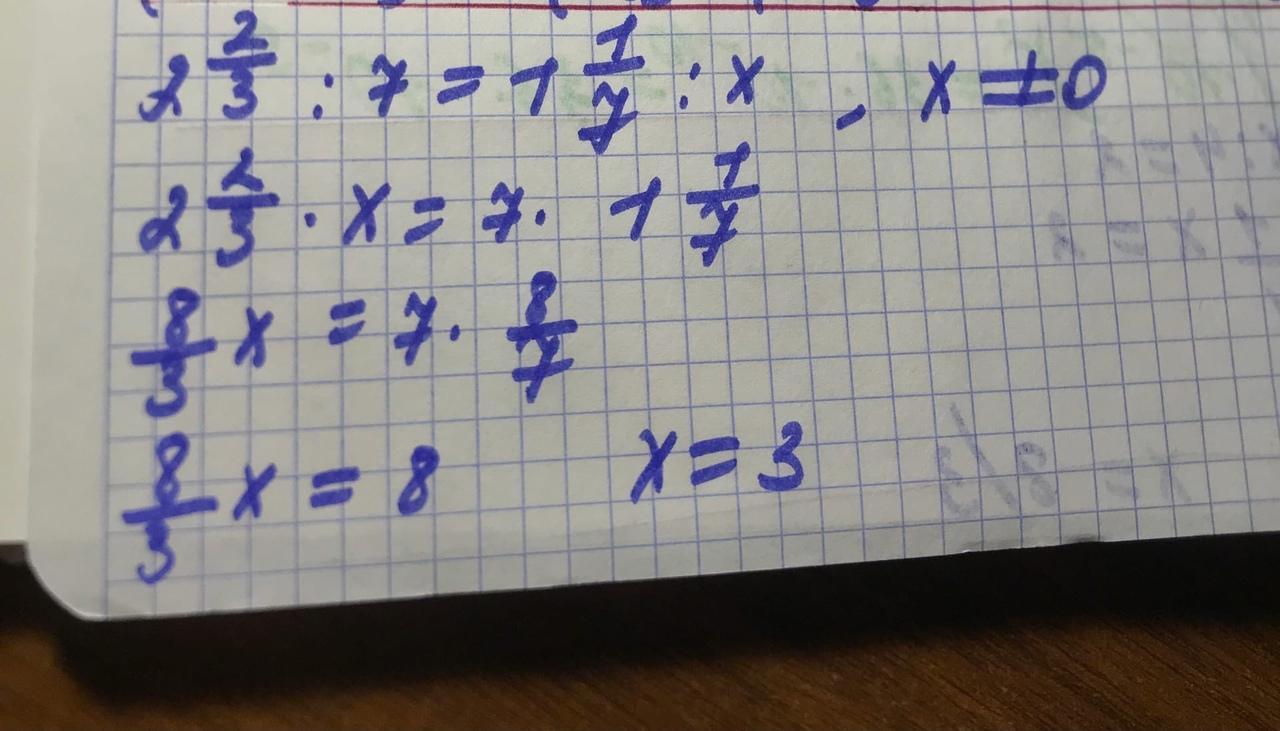 2 2/3 : 7 = 1 1/7 : x , x ≠ 0
2 2/3 · x = 7 · 1 1/7
8/3 x = 7 · 8/7
8/3 x = 8 x = 3